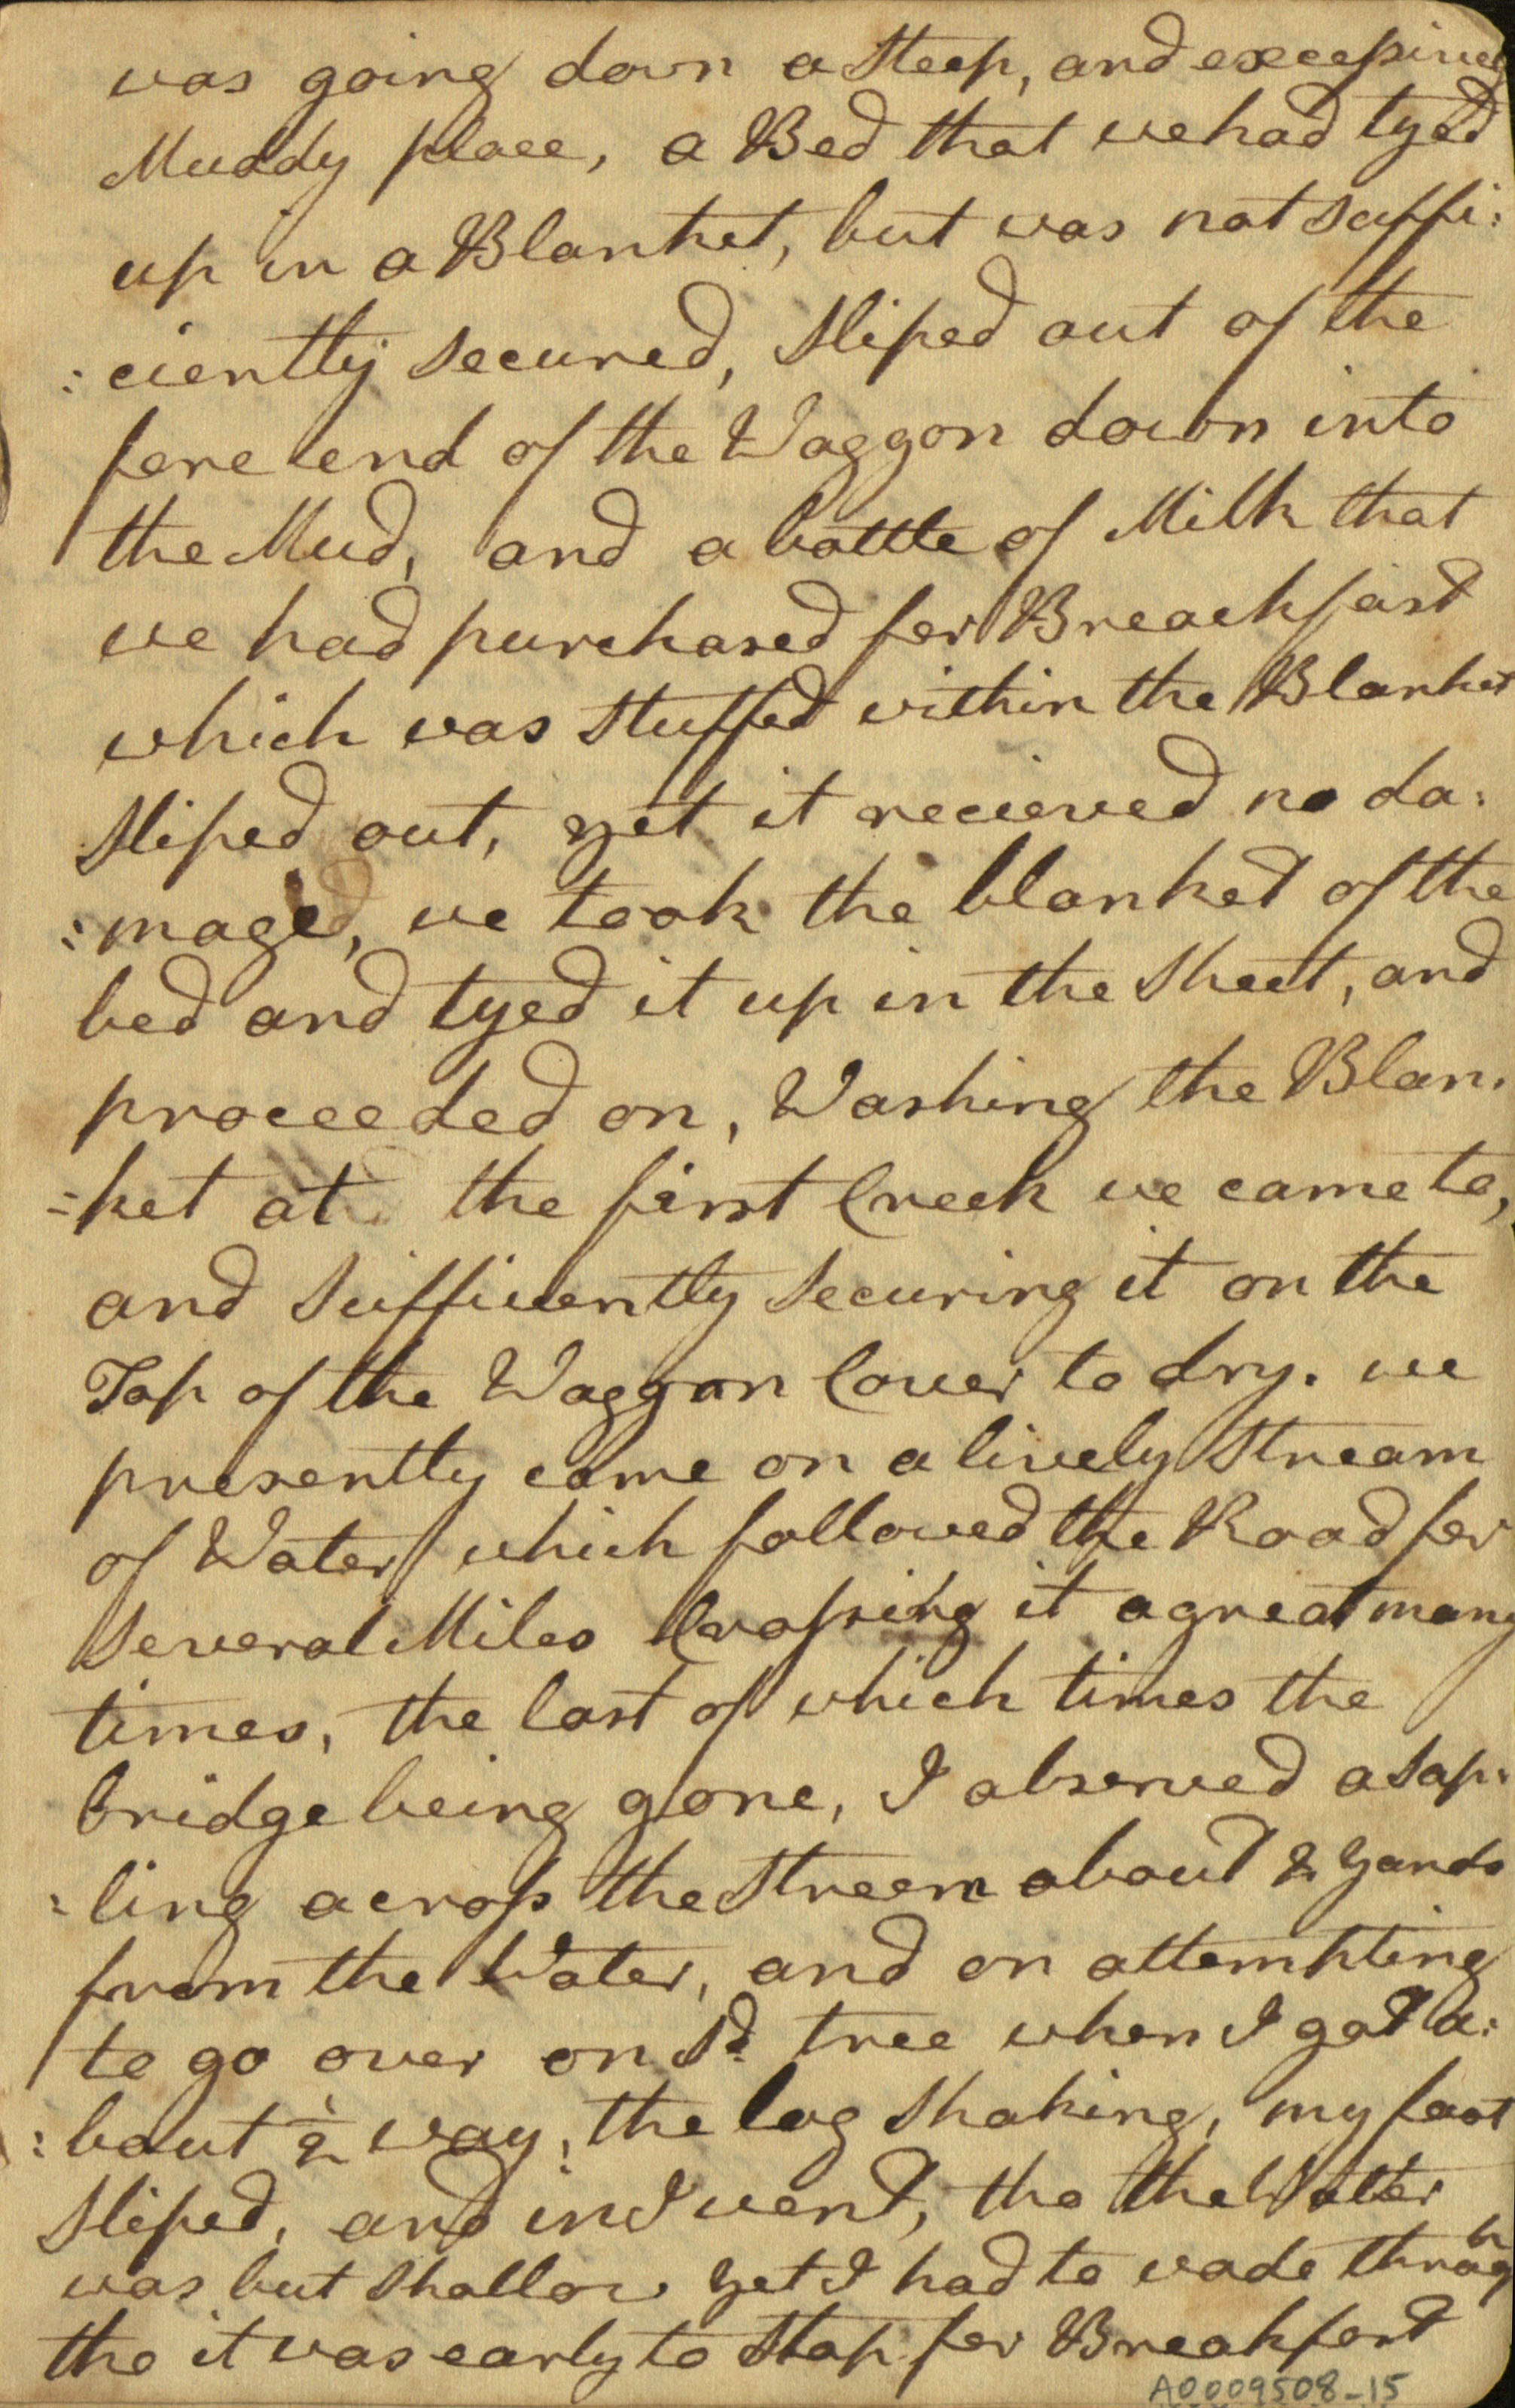 was going down a steep, and excessiveg
Muddy place, a Bed that we had tyed
up in a Blanket, but was not suffi:
:ciently secured, sliped out of the
fore end of the Waggon down into
the Mud, and a bottle of Milk that
we had purchased for Breackfast
which was stuffed within the Blanket
sliped out, yet it recieved no da:
:mage, we took the blanket of the
bed and tyed it up in the Sheet, and
proceeded on, Washing the Blan:
-ket at the first Creek we came to,
and sufficiently securing it on the
Top of the Waggon Cover to dry. we
presently come on a lively Stream
of Water which followed the Road for
several Miles Crossing it a great many
times, the last of which times the
bridge being gone, I observed a sap:
:ling across the Streem about 2 yards
from the Water, and on attempting
to go over on sd. tree when I got a:
:bout ½ way, the log shaking, my foot
sliped, and in I went, tho the Watter
was but shallow yet I had to wade throgh
tho it was early to stop for Breakfast
A0009508-15